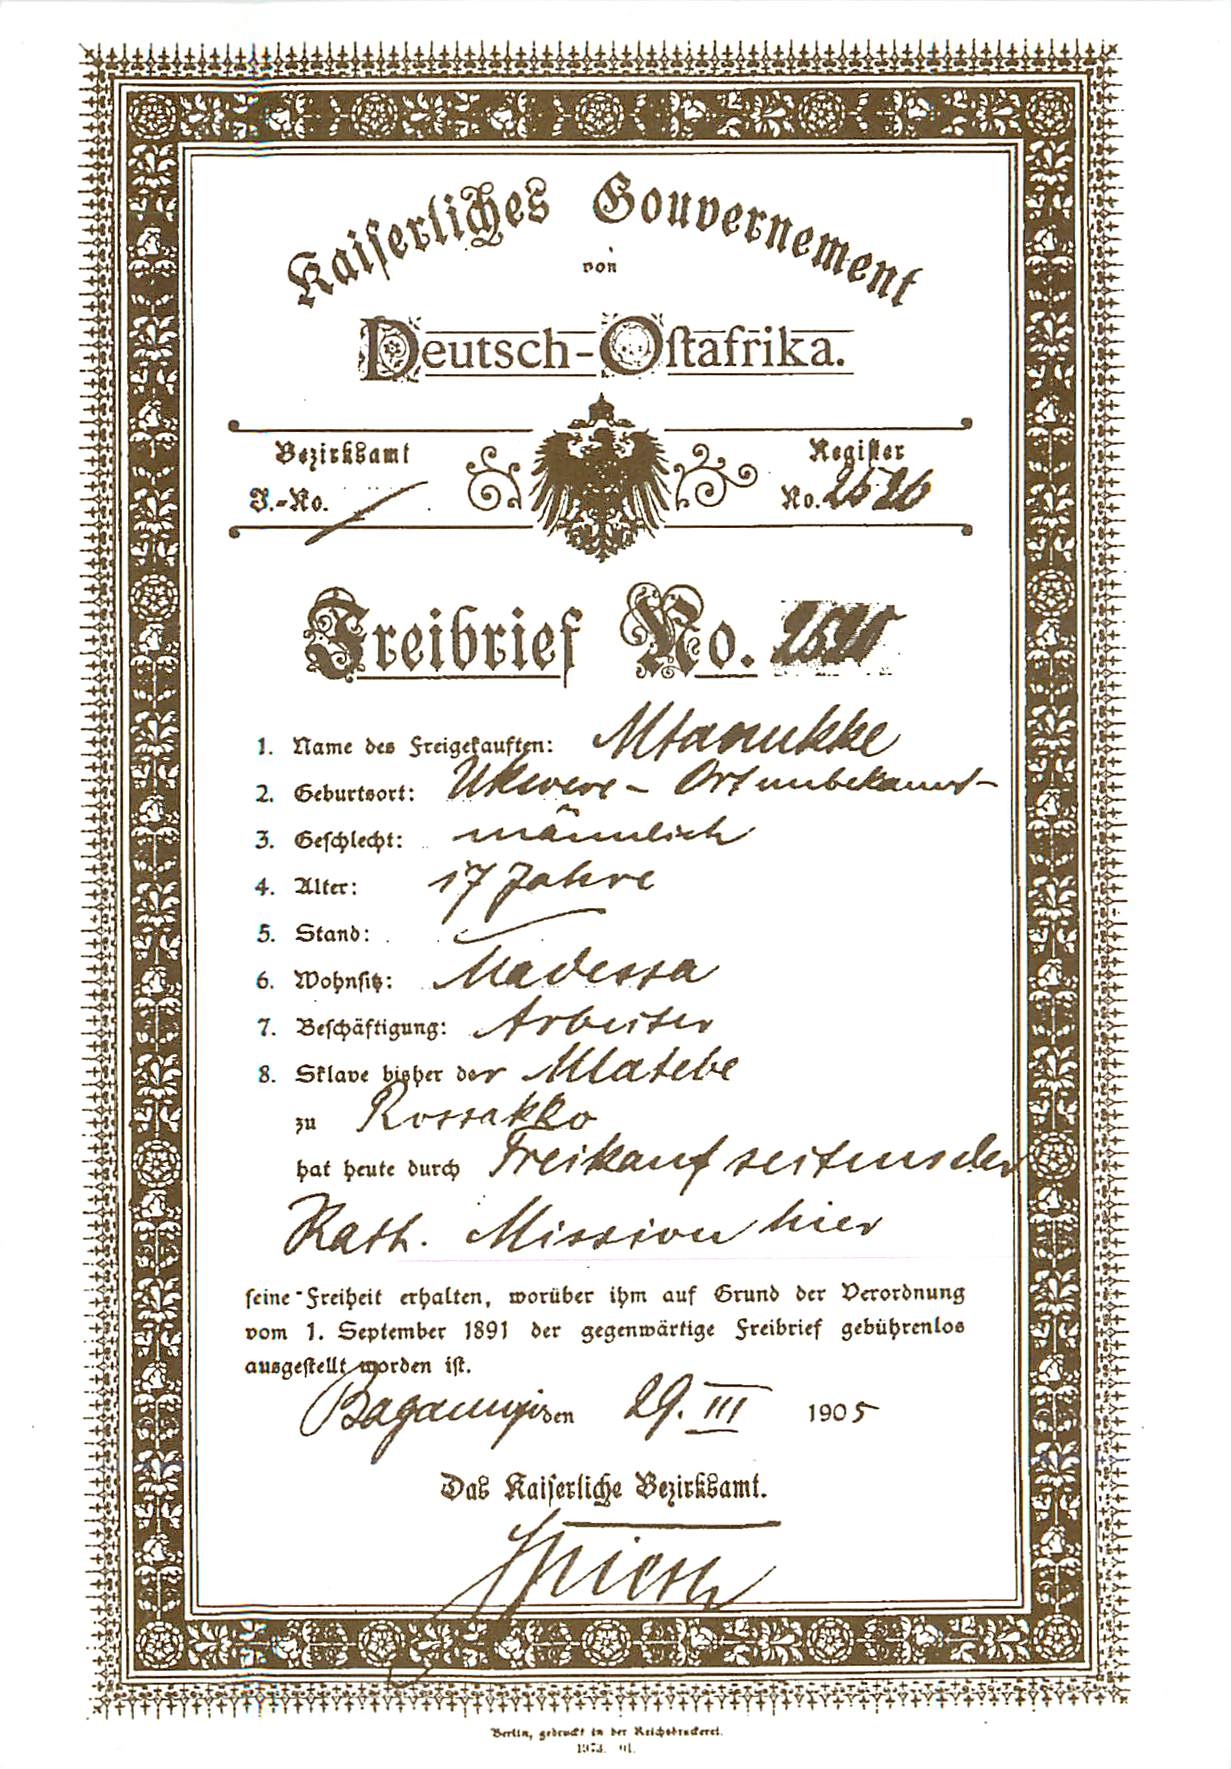 Kaiserliches Gouvernement
von
Deutsch-Ostafrika.
Bezirksamt
J.-No.
Register
No. 2526
Freibrief No.
1. Name des Freigekauften: Mtanukke
2. Geburtsort: Ukwere - Ort unbekannt -
3. Geschlecht: männlich
4. Alter: 17 Jahre
5. Stand:
6. Wohnsitz: Madessa
7. Beschäftigung: Arbeiter
8. Sklave bisher der Matebe
zu Rossakko
hat heute durch Freikauf seitens der
Kath. Mission hier
seine Freiheit erhalten, worüber ihm auf Grund der Verordnung
vom 1. September 1891 der gegenwärtige Freibrief gebührenlos
ausgestellt worden ist.
den 29. III 1905
Das Kaiserliche Bezirksamt.
Berlin, gedruckt in der Reichsdruckerei.